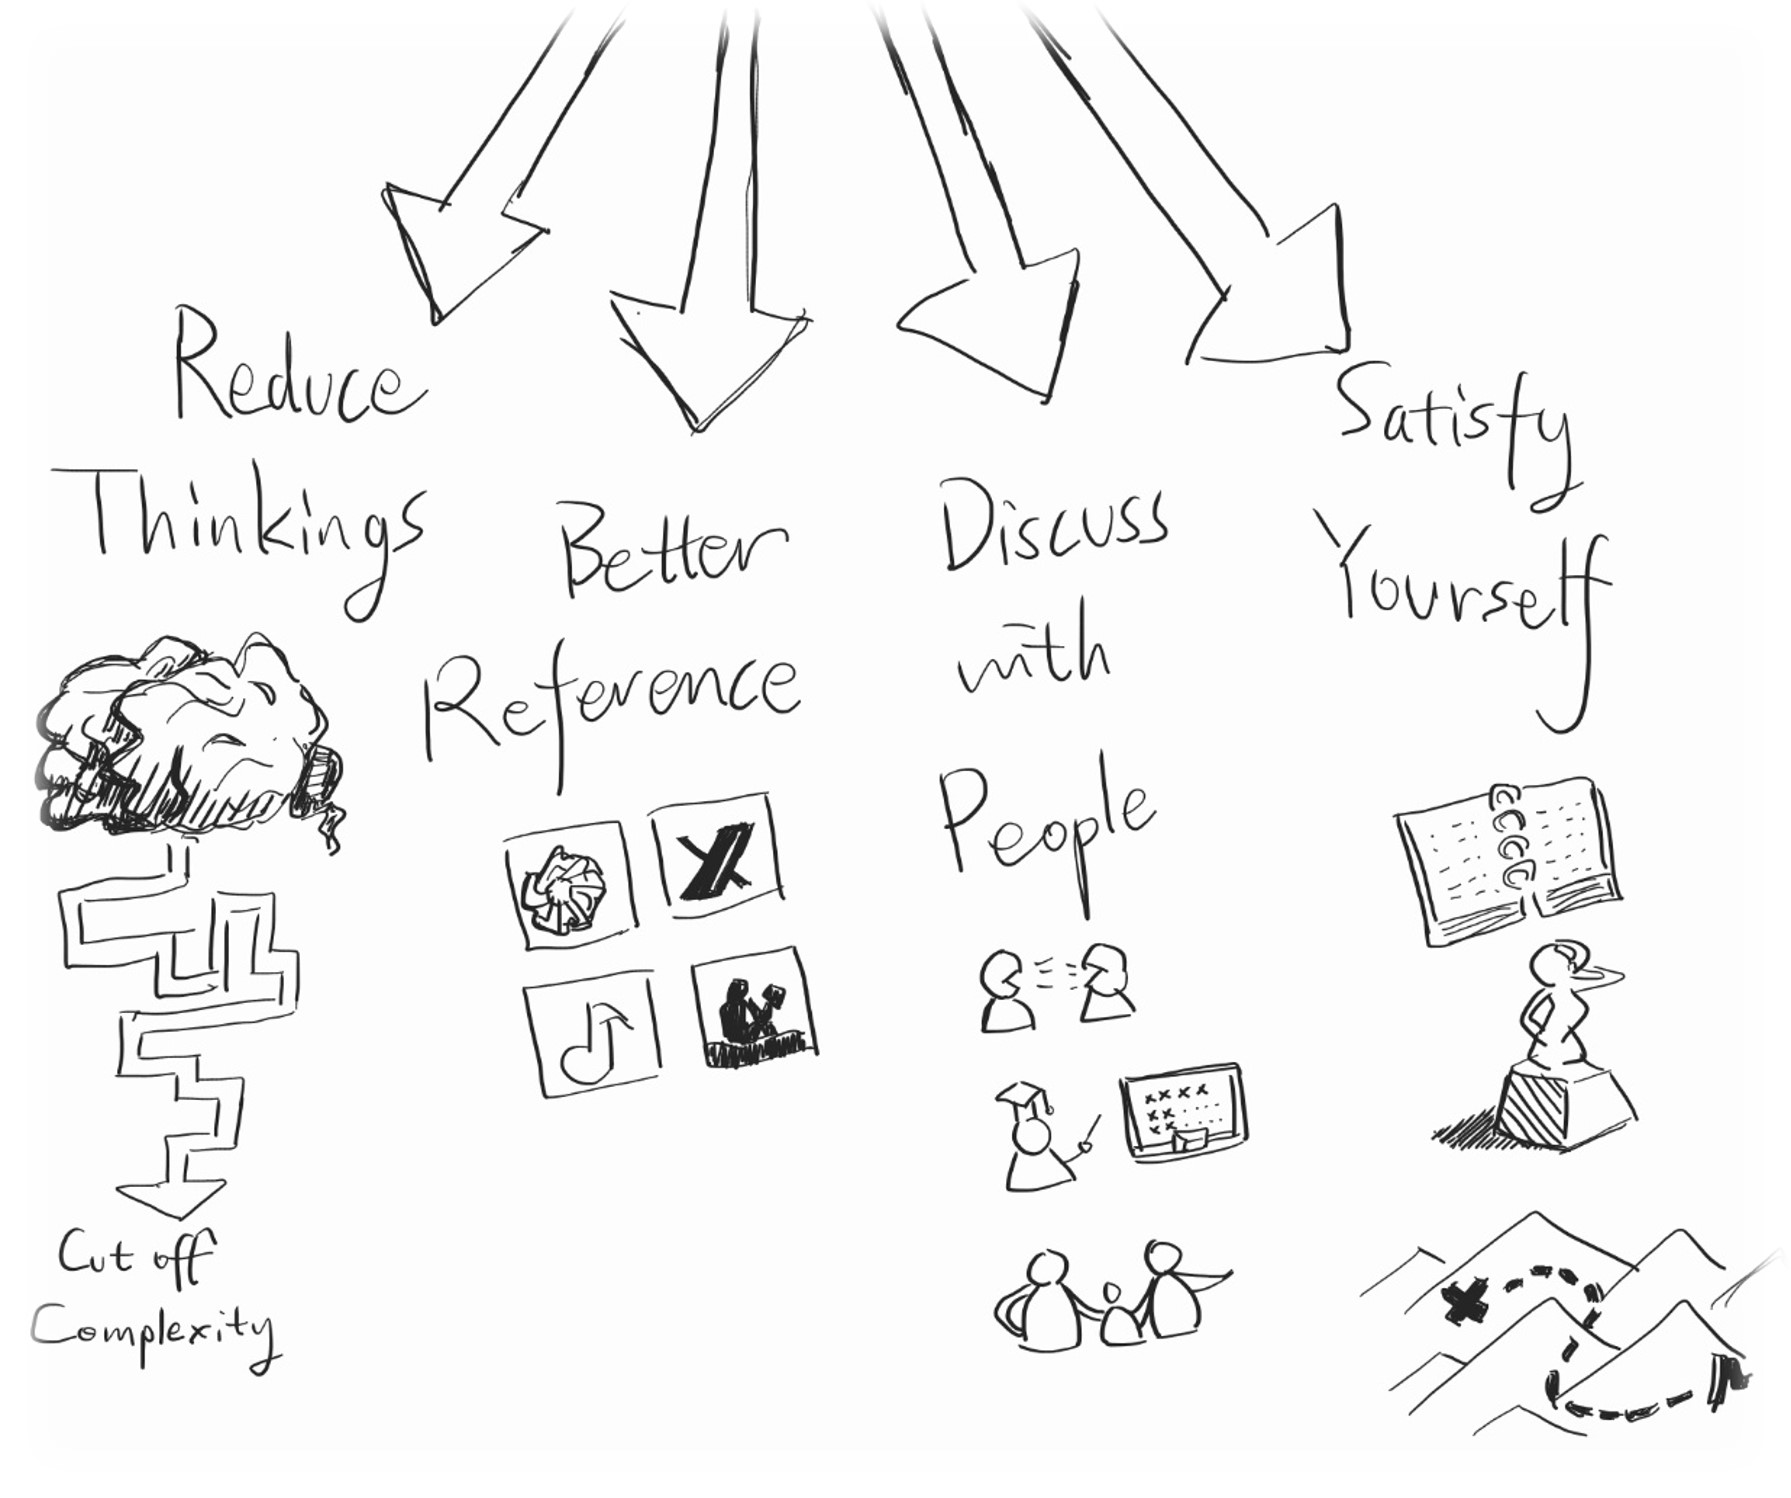 Reduce
Thinkings
Cut off
Complexity
Better
Reference
Discuss
with
People
Satisfy
Yourself